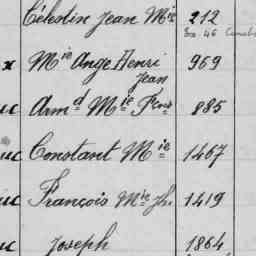 Célestin Jean Mie 212
x Mie Ange Henri 969
Jean
uc Armd M_ie Fçois 885
uc Constant M_ie 1467
uc François Mie Jh. 1419
uc Joseph 1864